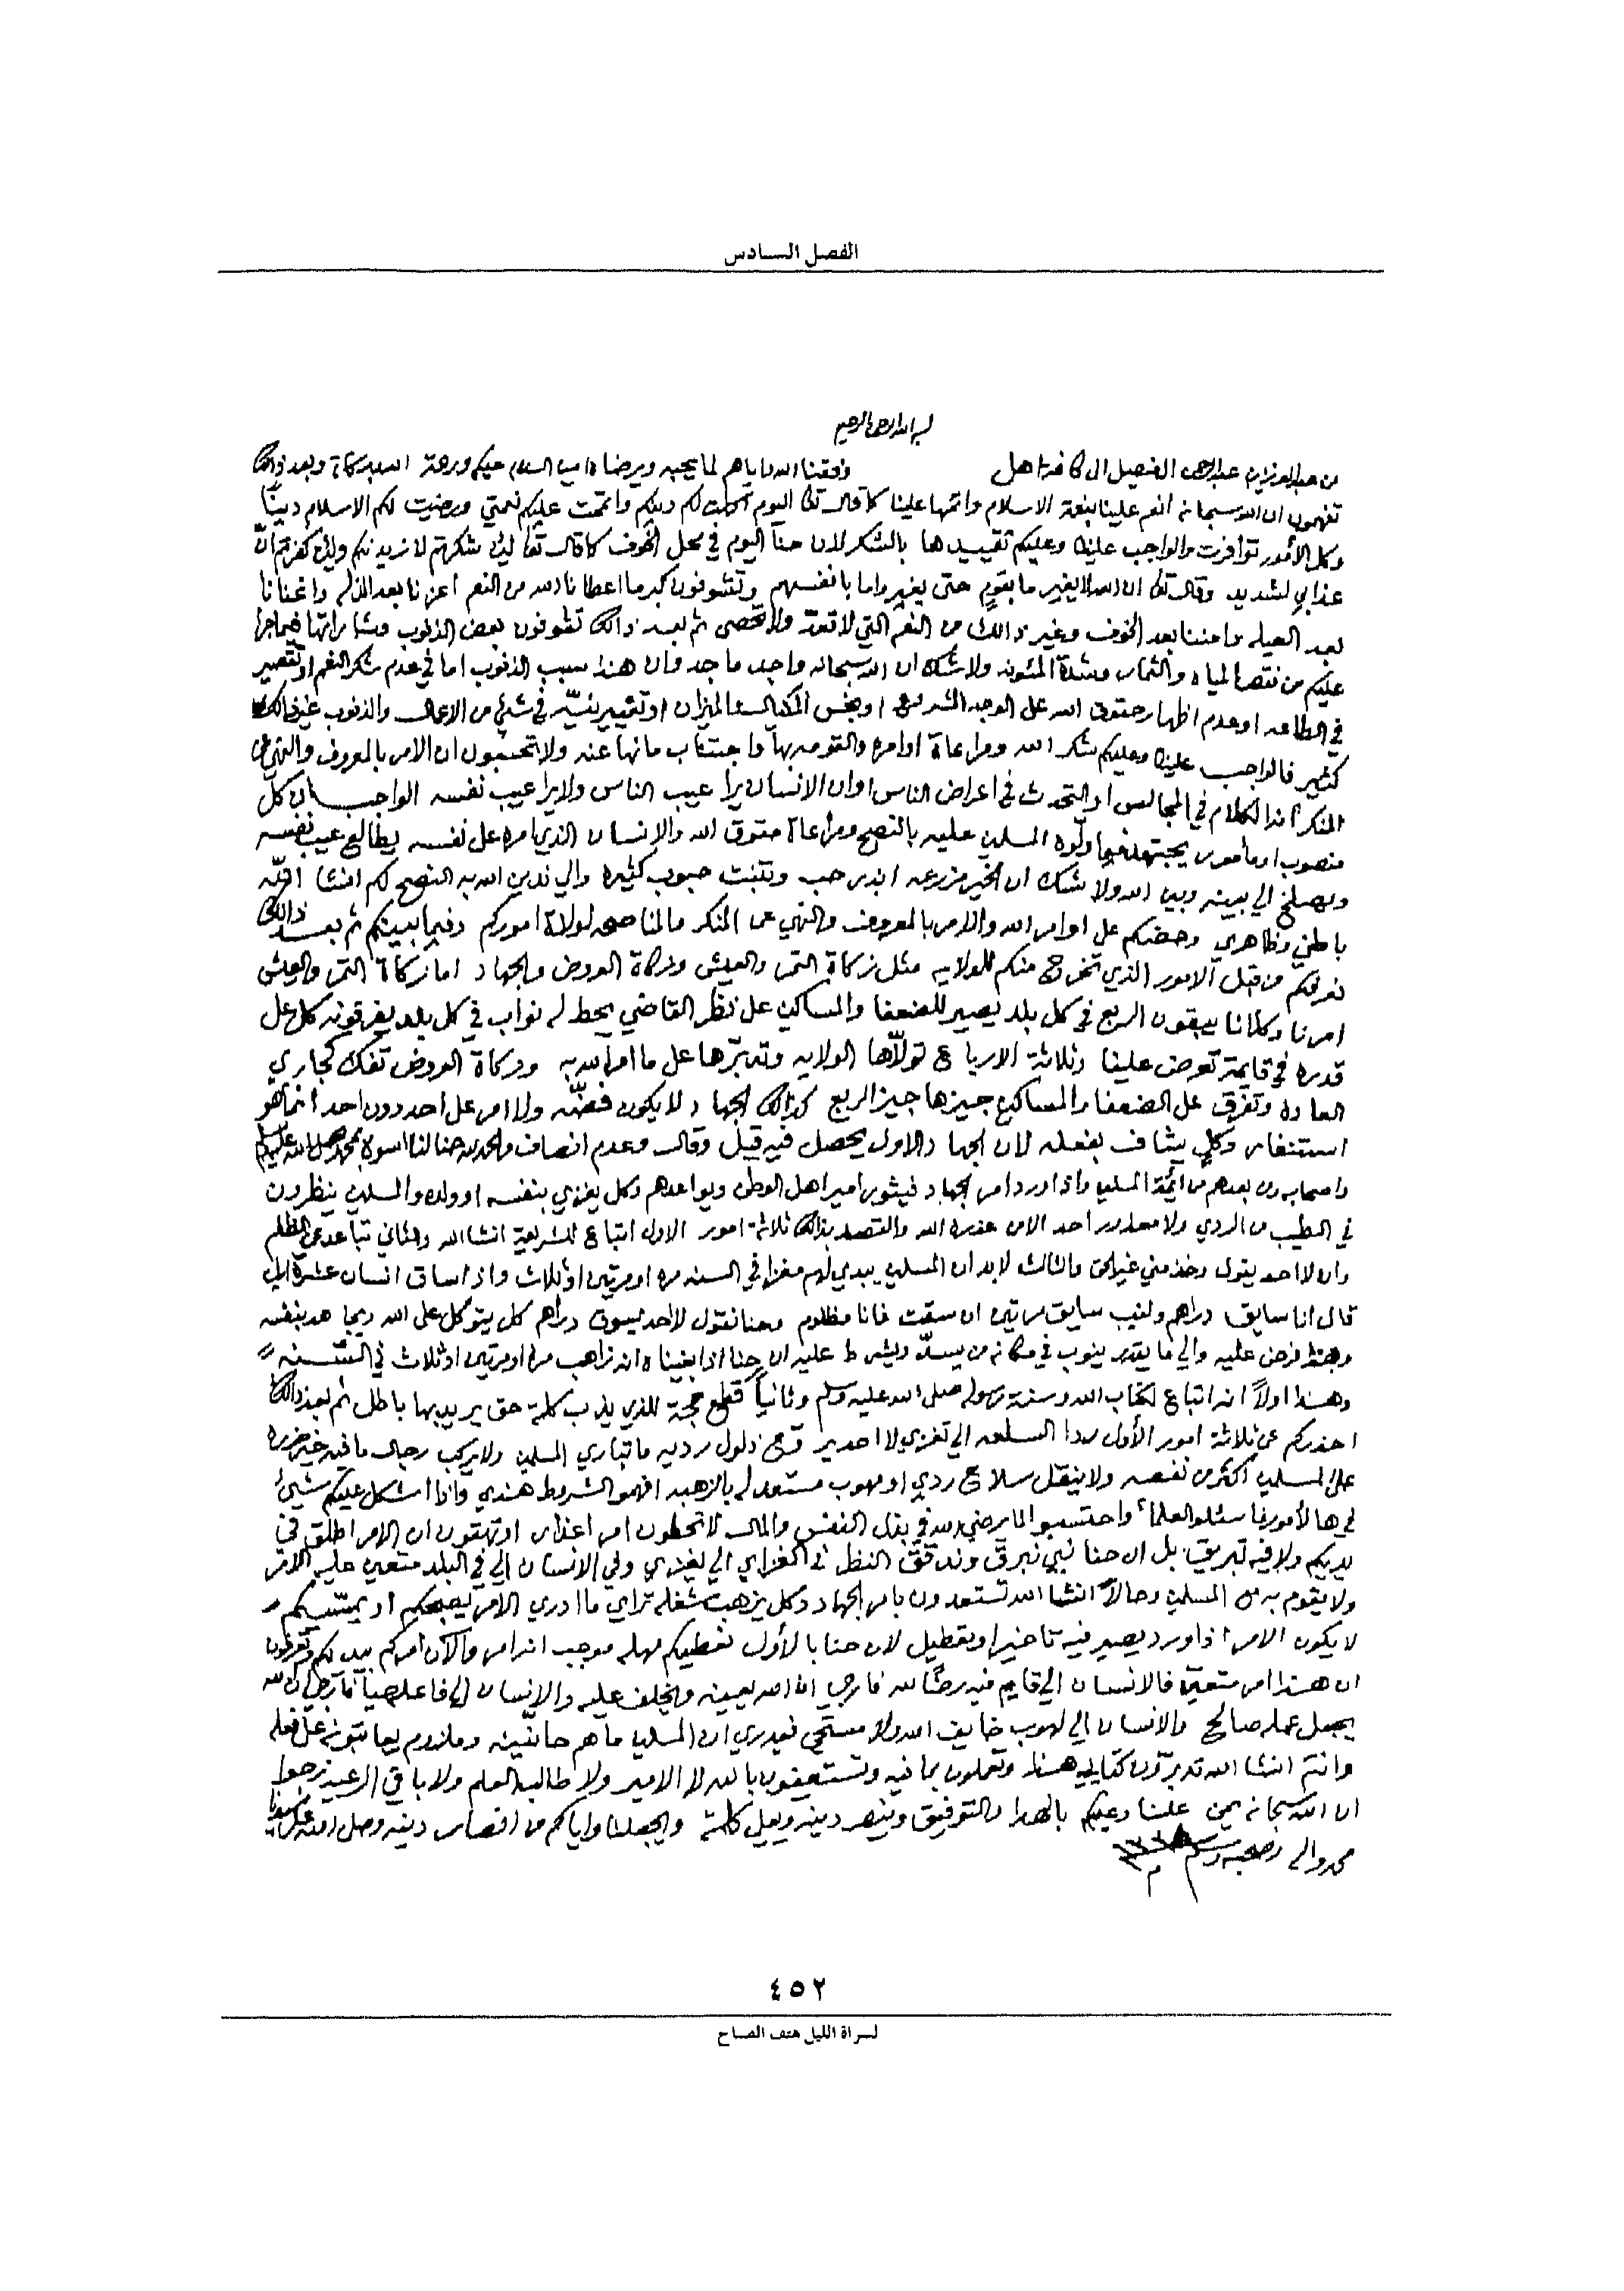 الفصل السادس
بسم الله الرحمن الرحيم
من عبدالعزيز بن عبدالرحمن الفيصل الى كافة اهل وفقنا الله واياهم لما يحبه ويرضاه امين السلام عليكم ورحمة الله وبركاته وبعد ذالك
تفهمون ان الله سبحانه انعم علينا بنعمة الاسلام واتمها علينا كما قال تعالى اليوم اكملت لكم دينكم واتممت عليكم نعمتي ورضيت لكم الاسلام دينًا
وكل الأمور توافرت والواجب علينا وعليكم تقييدها بالشكر لان حنا اليوم في محل الخوف كما قال تعالى لئن شكرتم لازيدنكم ولئن كفرتم انّ
عذابي لشديد وقال تعالى ان الله لا يغير ما بقوم حتى يغيروا ما بانفسهم وتشوفون كبر ما اعطانا الله من النعم اعزنا بعد الذله واغنانا
بعد العيله وامننا بعد الخوف وغير ذالك من النعم التي لا تعدّ ولا تحصى ثم بعد ذالك تشوفون بعض الذنوب وشاراتها فيما جرا
عليكم من نقص المياه والثمار وشدة المئونه ولا شك ان الله سبحانه واجد ماجد وان هذا سبب الذنوب اما في عدم شكر النعم او تقصير
في الطاعه او عدم اظهار حقوق الله على الوجه الشرعي او بخس المكيال والميزان او تغيير نيّه في شيئ من الاعمال والذنوب غير ذالك
كثير فالواجب علينا وعليكم شكر الله ومراعاة اوامره والقومه بها واجتناب ما نها عنه ولا تحسبون ان الامر بالمعروف والنهي عن
المنكر انه الكلام في المجالس او التحدث في اعراض الناس او ان الانسان يرا عيب الناس ولا يرا عيب نفسه الواجب ان كل
منصوب او مأمور يجتهد فيما ولّوه المسلمين عليه بالنصح ومراعاة حقوق الله والانسان الذي امره على نفسه يطالع عيب نفسه
ويصلح الي بينه وبين الله ولا شك ان الخير مزرعه ابذر حب وتنبت حبوب كثيره والي ندين الله به النصح لكم انشا الله
باطني وظاهري وحضكم على اوامر الله والامر بالمعروف والنهي عن المنكر والمناصحه لولاة اموركم وفيما بينكم ثم بعد ذالك
نعرفكم من قبل الامور الذي تخرج منكم للولايه مثل زكاة التمر والعيش وزكاة العروض والجهاد اما زكاة التمر والعيش
امرنا وكلانا يبقون الربع في كل بلد يصير للضعفا والمساكين على نظر القاضي يحط له نواب في كل بلد يفرقونه كل على
قدره في قايمة تعرض علينا وثلاثة الارباع تولّاها الولايه وتدبّرها على ما امر الله به وزكاة العروض تفك كجاري
العاده وتفرق على الضعفا والمساكين جيزها جيز الربع كذالك الجهاد لا يكون فضّه ولا امر على احد دون احد انما هو
استنفار وكل يشاف بفعله لان الجهاد الاول يحصل فيه قيل وقال وعدم انصاف والحمد لله حنا لنا اسوة بمحمد صلى الله عليه وسلم
واصحابه ومن بعدهم من ائمة المسلمين واذا ورد امر الجهاد فيثور امير اهل الوطن ويواعدهم وكل يغزي بنفسه او ولده والمسلمين ينظرون
في الطيب من الردي ولا معذور احد الا من عذره الله والقصد بذالك ثلاثة امور الاول اتباع للشريعة انشا الله والثاني تباعد عن الظلم
وان لا احد يقول وخذ مني غير الحق والثالث لابد ان المسلمين يبدي لهم مغزا في السنه مره او مرتين او ثلاث واذا ساق انسان عشرة اريل
قال انا سايق دراهم ولنيب سايق مرتين ان سقت فانا مظلوم وحنا نقول لاحد يسوق دراهم كل يتوكل على الله ويجاهد بنفسه
وهذا فرض عليه والي ما يقدر ينوب في مكانه من يسدّ ويشرط عليه ان حنا اذا بغيناه انه ذاهب مره او مرتين او ثلاث في السّنه
وهذا اولاً انه اتباع لكتاب الله وسنة رسوله صلى الله عليه وسلم وثانياً قطع حجة للذي يذب كلمة حق يريد بها باطل ثم بعد ذالك
احذركم عن ثلاثة امور الأول ردا السلعه الي تغزي لا احد ير قح ذلول رديه ما تباري المسلمين ولا يركب رجال ما فيه خير ضرره
على المسلمين اكثر من نفعه ولا ينقل سلاح ردي او مهوب مستعد له بالزهبه افهموا الشروط هذي واذا اشكل عليكم شيئ
في هالأمور فاسئلو العلما واحتسبوا لما يرضي الله في بذل النفس والمال لا تحطون امر اعذار او تهقون ان الامر اطلق في
يديكم ولا فيه تبريق بل ان حنا نبي نبرق وندقق النظر في الغزاي الي يغزي وفي الانسان الي في البلد متعين عليه الامر
ولا يقوم به مع المسلمين وحالاً انشا الله تستعدون بامر الجهاد وكل يزهب شغله تراي ما ادري الامر يصبحكم او يمسّيكم
لا يكون الامر اذا ورد يصير فيه تاخير او تعطيل لان حنا بالأول نعطيكم مهله موجب انذار والآن امركم بيد لكم وتعرفون
ان هذا امر متعيّن فالانسان الي قايم فيه رضاً لله فارجي ان الله يعينه ويخلف عليه والانسان الي فاعله حيا فارجي ان الله
يجعل عمله صالح والانسان الي مهوب خايف الله ولا مستحي فيدري ان المسلمين ما هم حاقينه وملزوم يعاقبونه على فعله
وانتم انشا الله تدبرون كتابي هذا وتعملون بما فيه وتستعينون بالله لا الامير ولا طالب العلم ولا باقي الرعيه نرجوا
ان الله سبحانه يمن علينا وعليكم بالهدا والتوفيق وينصر دينه ويعلي كلمته ويجعلنا واياكم من انصار دينه وصلى الله على نبينا
محمد واله وصحبه وسلم
٤٥٢
لسراة الليل هتف الصباح